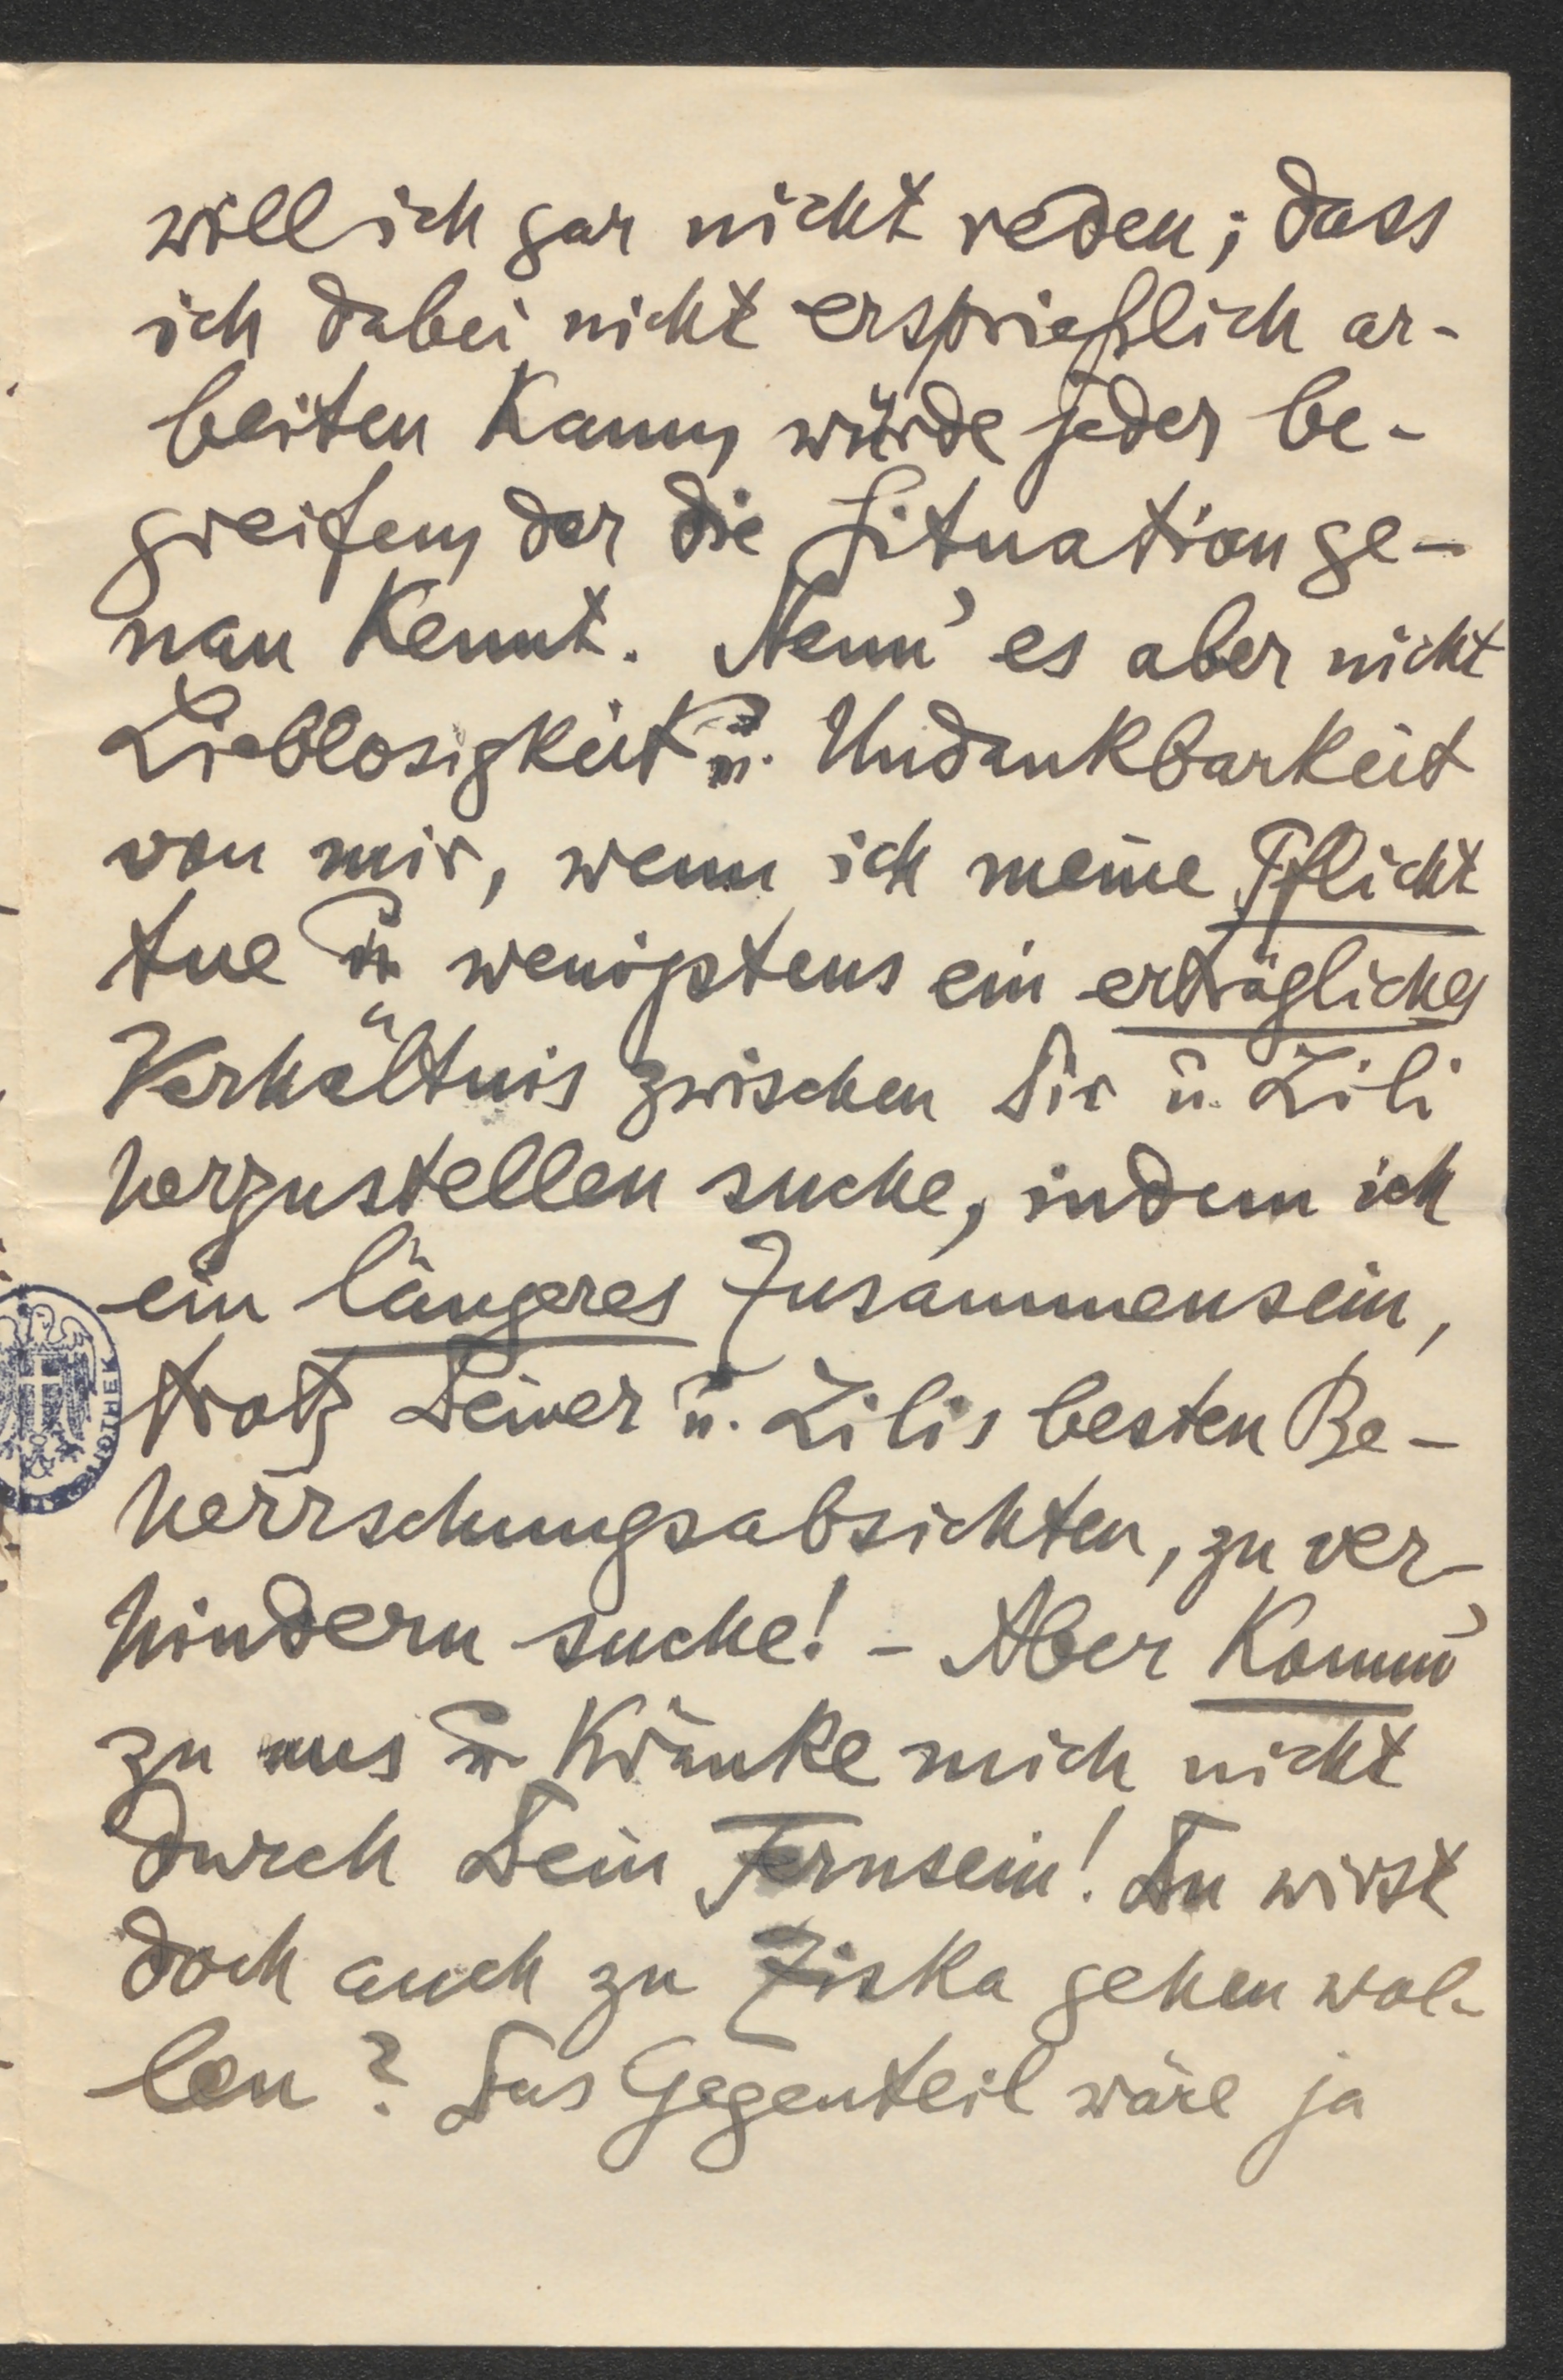 will ich gar nicht reden; dass
ich dabei nicht ersprießlich ar-
beiten kann, würde jeder be-
greifen, der die Situation ge-
nau kennt. Nenn' es aber nicht
Lieblosigkeit u. Undankbarkeit
von mir, wenn ich meine Pflicht
tue u wenigstens ein erträgliches
Verhältnis zwischen Dir u. Lili
herzustellen suche, indem ich
ein längeres Zusammensein,
trotz Deiner u. Lilis besten Be-
herrschungsabsichten, zu ver-
hindern suche! - Aber komm'
zu uns u kränke mich nicht
durch Dein Fernsein! Du wirst
doch auch zu Ziska gehen wol-
len? Das Gegenteil wäre ja